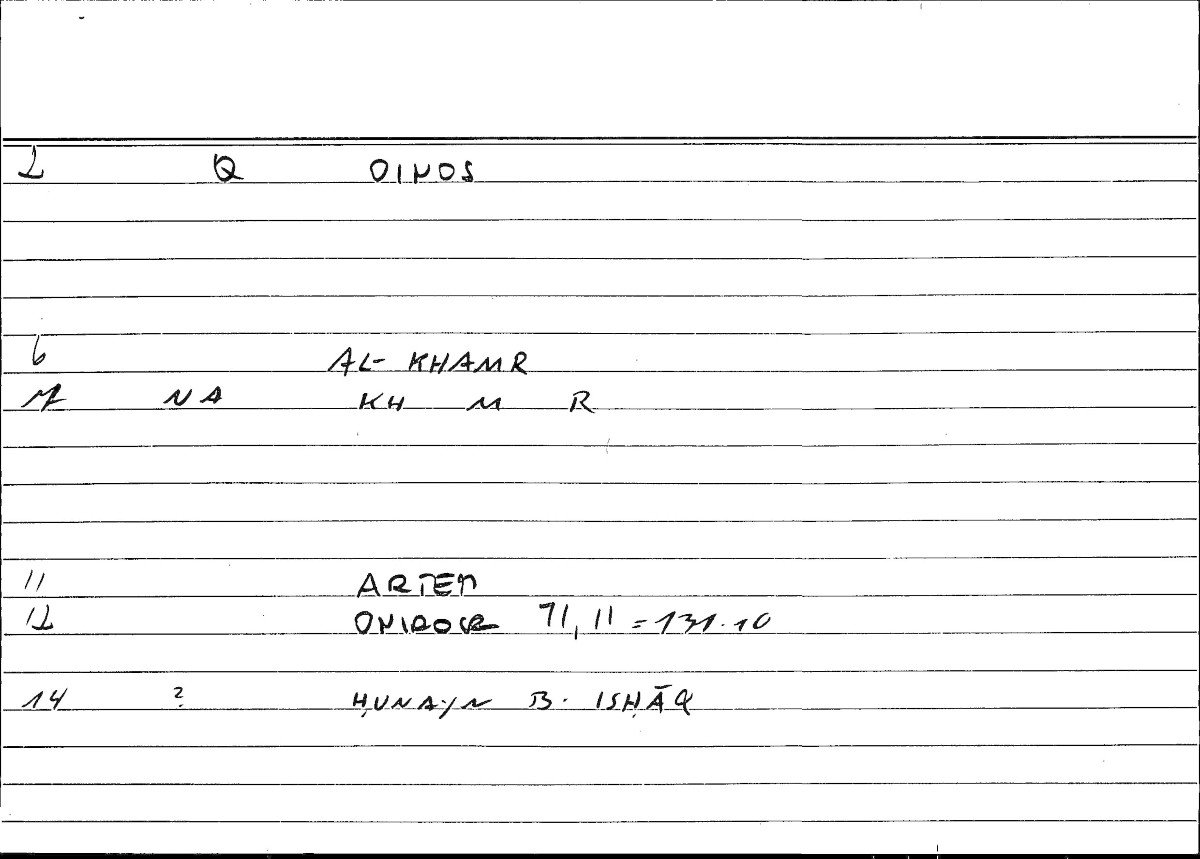 2 Q OINOS
6 AL-KHAMR
7 NA KH M R
11 ARTEM
12 ONIROCR 71,11 = 131.10
14 ? ḤUNAYN B. ISḤĀQ